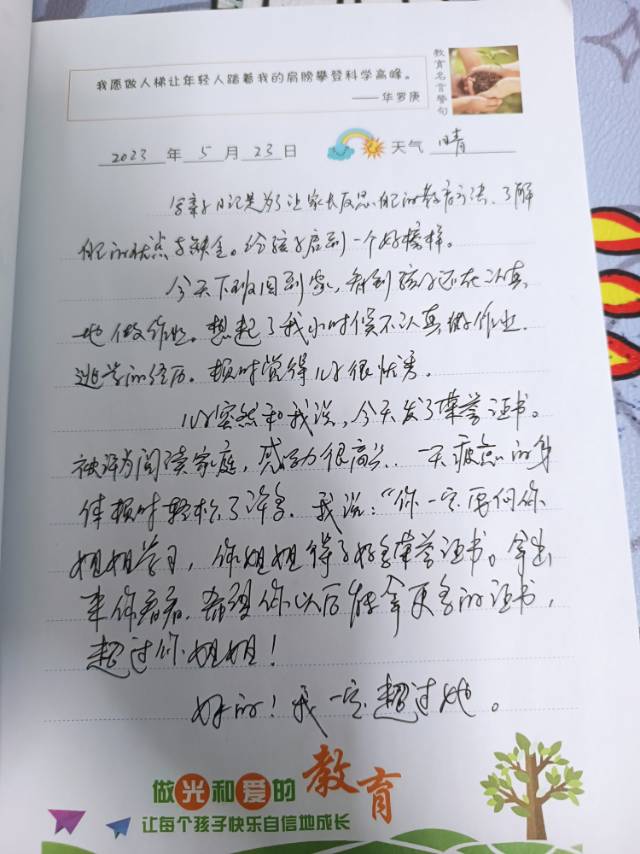 我愿做人梯让年轻人踏着我的肩膀攀登科学高峰。
——华罗庚
教育名言警句
2023 年 5 月 23 日 天气 晴
写亲子日记是为了让家长反思自己的教育方法、了解
自己的优点与缺点。给孩子启到一个好榜样。
今天下班回到家，看到孩子还在认真
地做作业。想起了我小时候不认真做作业.
逃学的经历。顿时觉得儿子很优秀.
儿子突然和我说，今天发了荣誉证书。
被评为阅读家庭，感动很高兴.. 一天疲惫的身
体顿时轻松了许多. 我说："你一定要向你
姐姐学习，你姐姐得了好多荣誉证书。拿出
来你看看. 希望你以后能拿更多的证书，
超过你姐姐！
好的！我一定超过她。
做光和爱的教育
让每个孩子快乐自信地成长